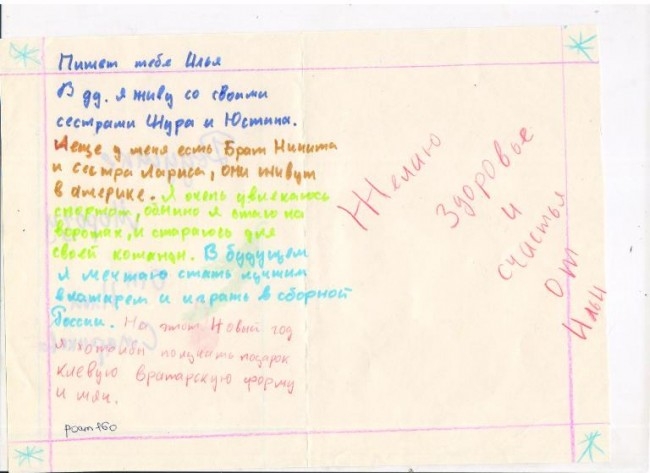 Пишет тебе Илья
В дд. я живу со своими
сестрами Шура и Юстина.
А еще у меня есть Брат Никита
и сестра Лариса, они живут
в америке. Я очень увлекаюсь
спортом, обычно я стаю на
воротах, и стараюсь для
своей команды. В будущем
я мечтаю стать лучшим
вратарем и играть в сборной
России. На этот Новый год
я хотел бы получить подарок
клевую вратарскую форму
и мяч.
рост 160
Желаю
Здоровье
и
счастья
от
Ильи